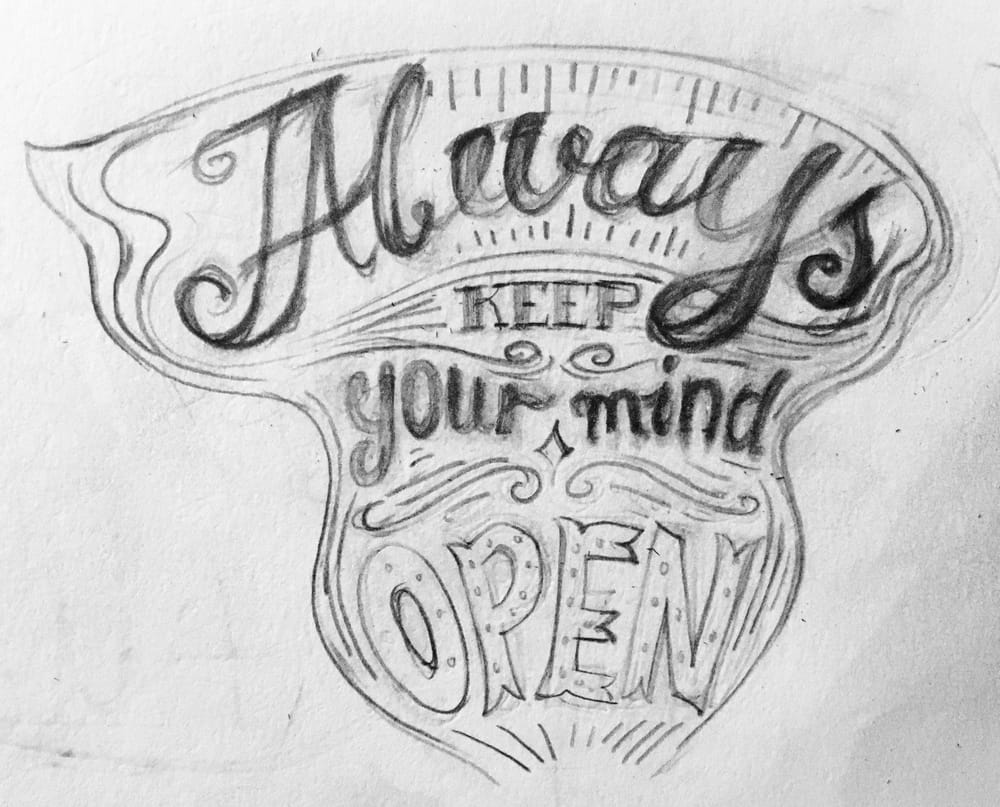 Always
KEEP
your mind
OPEN